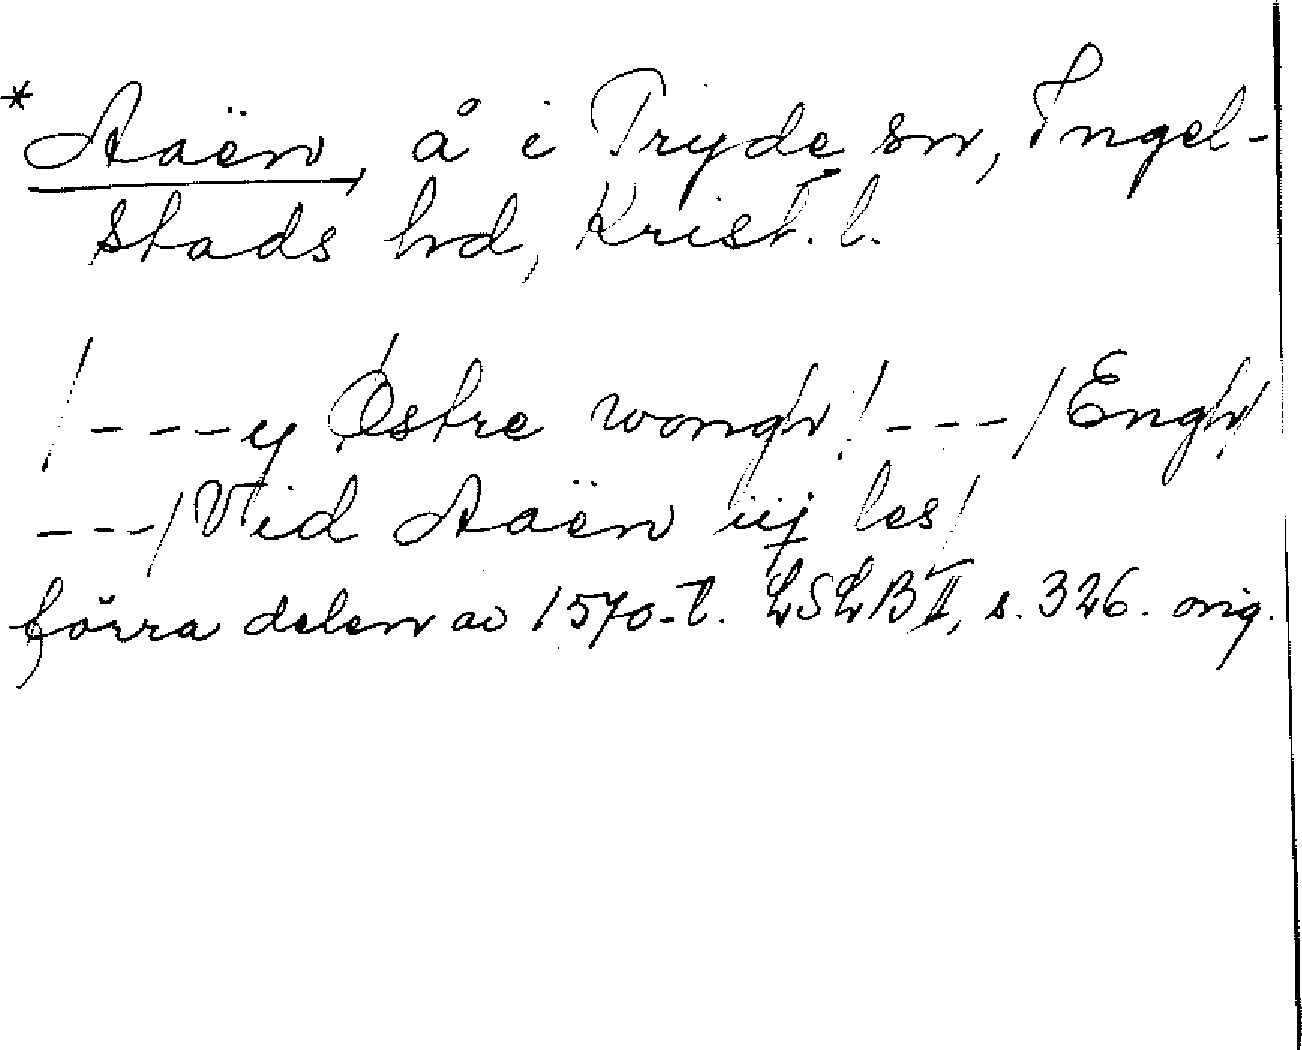 * Aaën, å i Tryde sn, Ingel-
stads hd, Krist. l.
/---y Østre wongh/---/Engh/
---/Vid Aaën iij les/
förra delen av 1570-t. LSLB II, s. 326. orig.